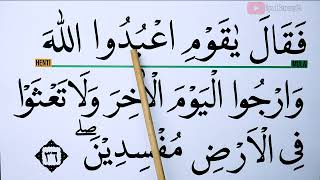 فَقَالَ يٰقَوْمِ اعْبُدُوا اللّٰهَ
HENTI MULA
وَارْجُوا الْيَوْمَ الْاٰخِرَ وَلَا تَعْثَوْا
فِى الْاَرْضِ مُفْسِدِيْنَ ۖ ٣٦